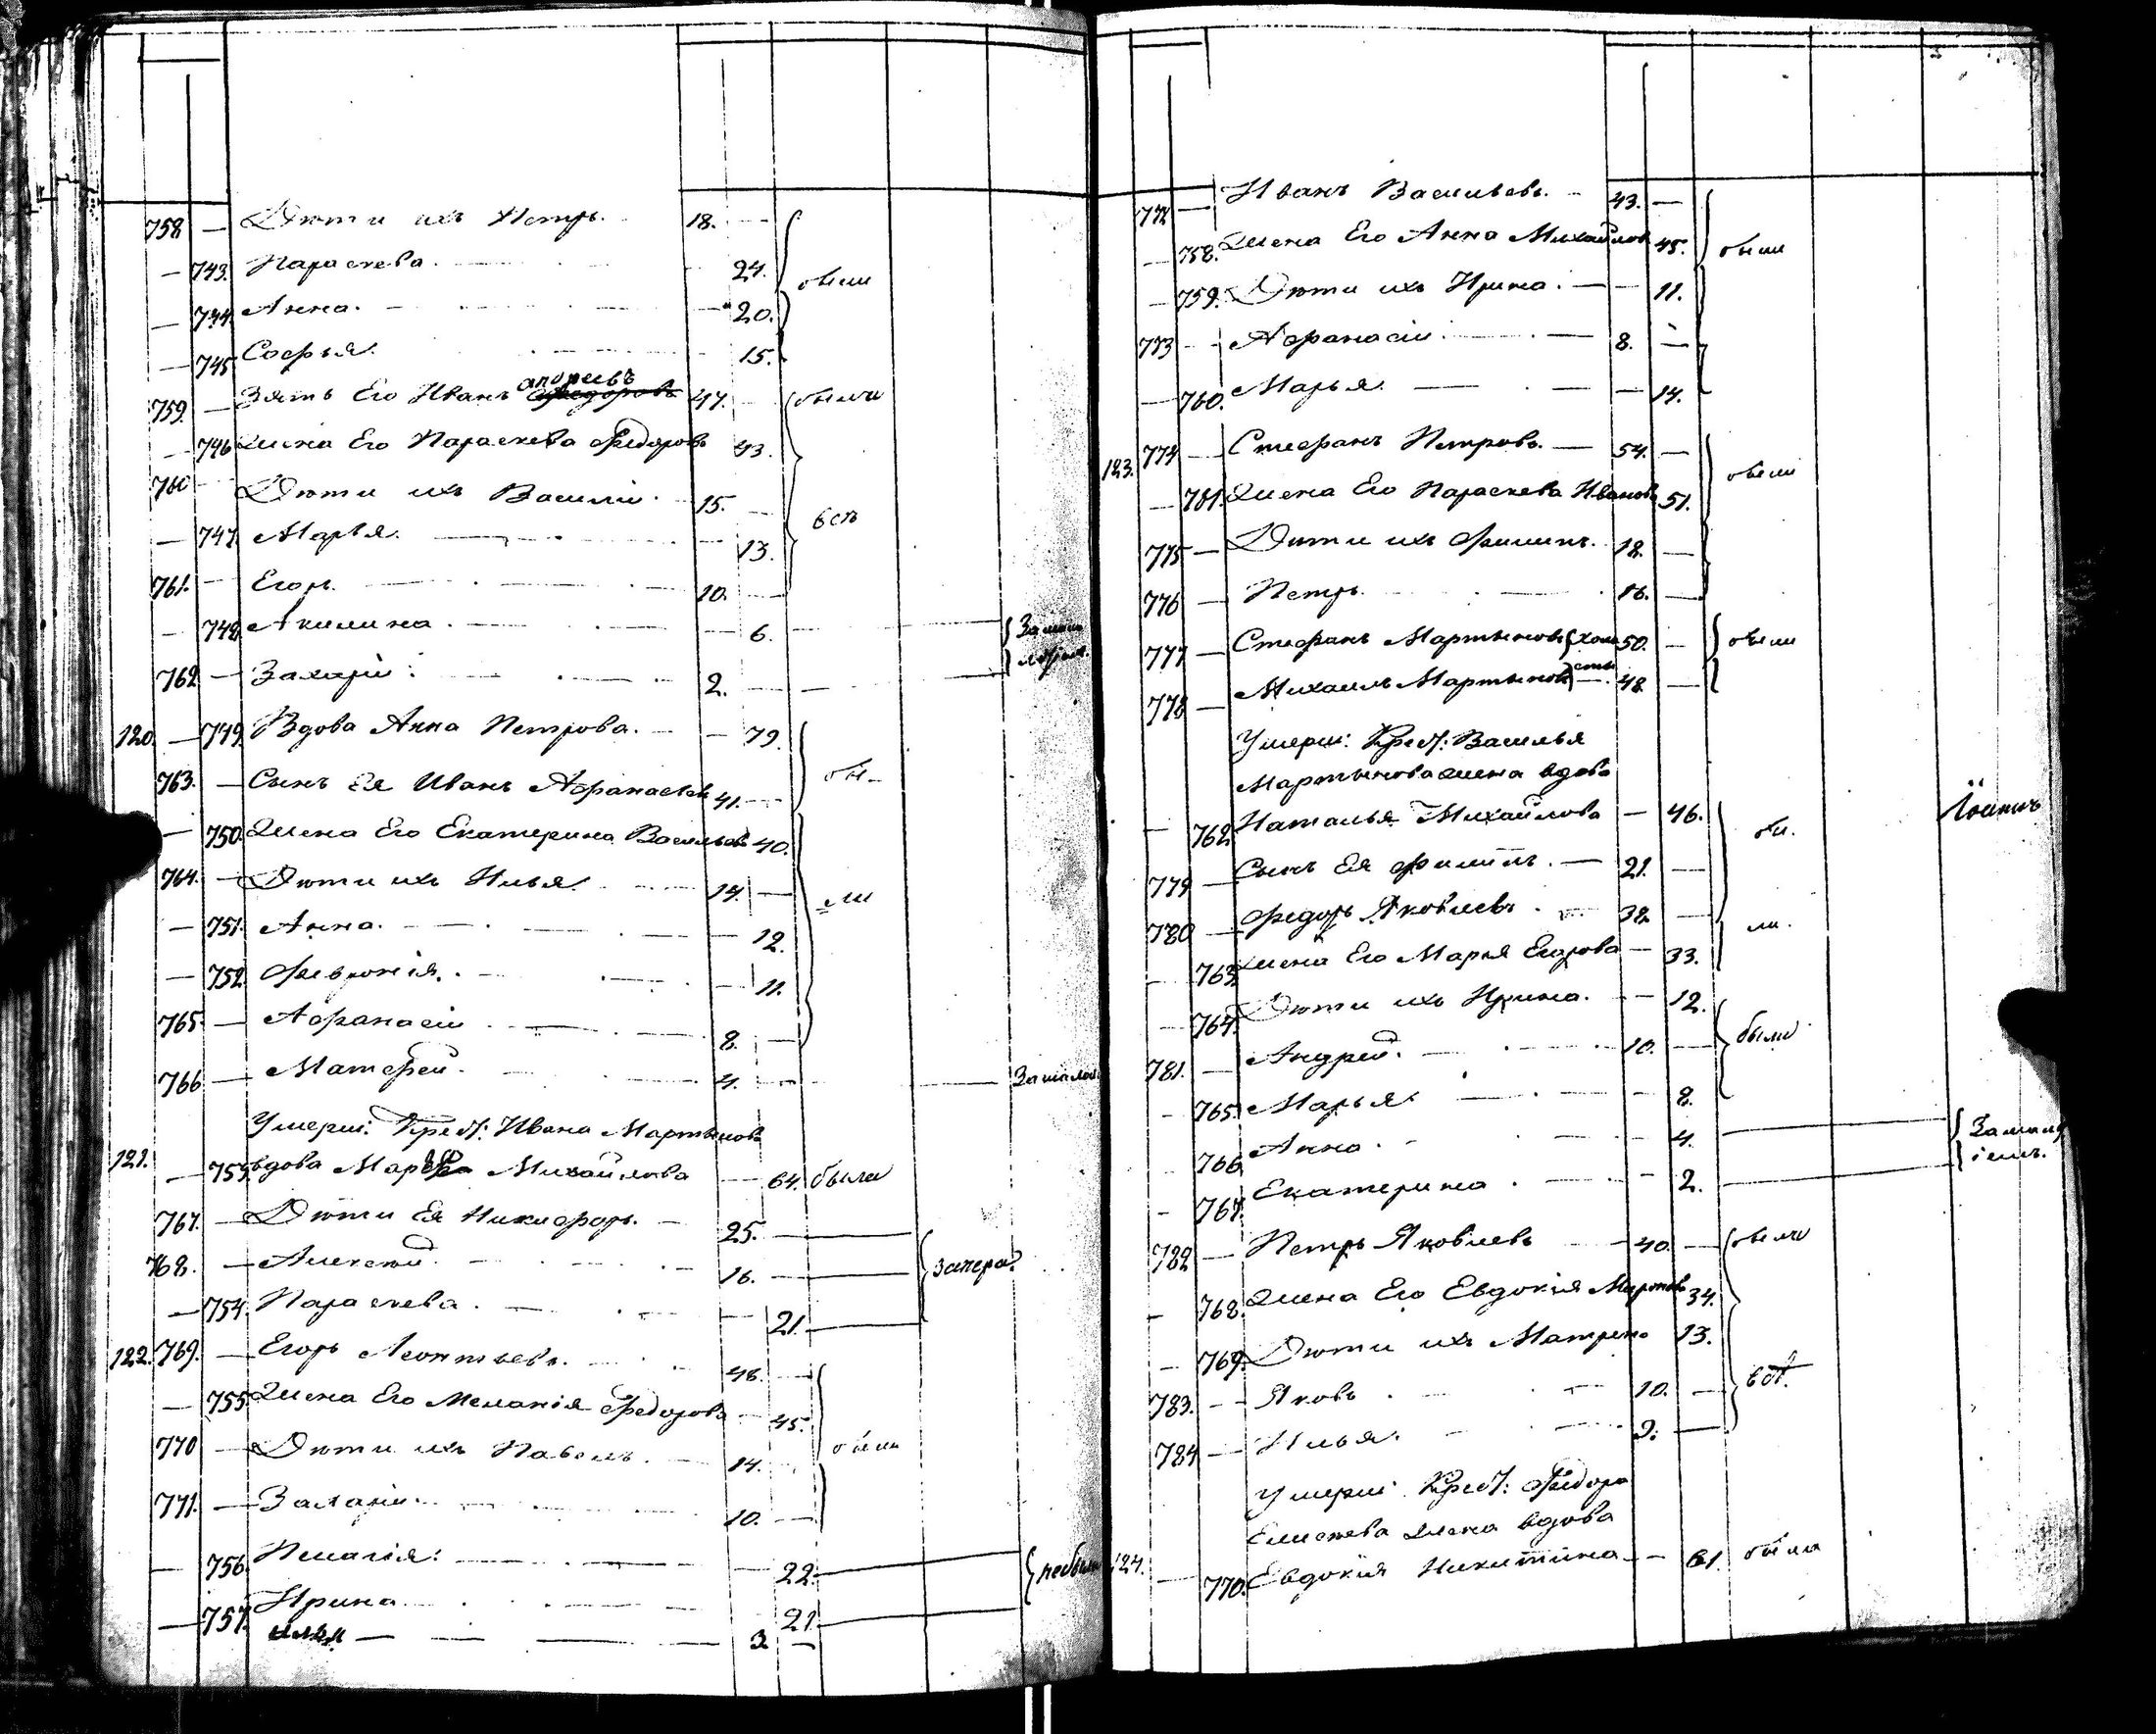 758 — Дѣти ихъ Петръ. 18. —
— 743. Параскева. 24. были
— 744. Анна. — 20.
— 745 Софья. 15.
андреевъ
759. — Зять Его Иванъ Федоровъ 47. — были
— 746 Жена Его Параскева Федоров 43.
760 — Дѣти ихъ Василій. 15. —
— 747. Марья. 13.
761. — Егоръ. 10. —
— 748. Акилина. — 6. — За мало
762. — Захарій. 2. —
120. — 749. Вдова Анна Петрова. — 79.
763. — Сынъ Ея Иванъ Афанасьев 41. — бы-
— 750. Жена Его Екатерина Васильев 40.
764. — Дѣти ихъ Илья. 14. — ли
— 751. Анна. — 12.
— 752. Февронія. — 11.
765. — Афанасій 8. —
766. — Матфей. 4. — За мало
Умерш: Крест: Ивана Мартынова
121. — 753. вдова Михайлова — 64. была
767. — Дѣти Ея Никифоръ. — 25. —
768. — Алексѣй. 16. —
— 754. Параскева. — 21.
122. 769. — Егоръ Леонтьевъ. 46. —
— 755. Жена Его Меланія Федорова — 45.
770 — Дѣти ихъ Павелъ. — 14. были
771. — Захарій. 10. —
— 756. Пелагія. — 22. небыли
— 757. Ирина 21.
илья — 3 —
772 — Иванъ Васильевъ. — 43. —
— 758. Жена Его Анна Михайлов 45. были
— 759. Дѣти ихъ Ирина. — 11.
773 — Афанасій — 8. —
— 760. Марья. — 14.
123. 774 — Стефанъ Петровъ. — 54. —
— 761. Жена Его Параскева Иванова 51. были
775 — Дѣти ихъ Филиппъ. 18. —
776 — Петръ. 16. —
777 — Стефанъ Мартыновъ холо 50. — были
778 — Михаилъ Мартыновъ сты — 48 —
Умерш: Крест: Василья
Мартынова жена вдова
— 762. Наталья Михайлова — 46. бы.
779 — Сынъ Ея Филиппъ. — 21. —
780 — Федоръ Яковлевъ. 38. — ли.
— 763. Жена Его Марья Егорова — 33.
— 764. Дѣти ихъ Ирина. — 12.
781. — Андрей. — 10. — были
— 765. Марья. — 8.
— 766. Анна. — 4. — За мало
— 767. Екатерина. — 2. —
782 — Петръ Яковлевъ 40. — были
— 768. Жена Его Евдокія Миронов 34.
— 769. Дѣти ихъ Матрена 13.
783. — Яковъ. — 10. —
784 — Илья. — —
Умерш: Крест: Федора
Елисеева жена вдова
124. — 770. Евдокія Никитина — 61. была